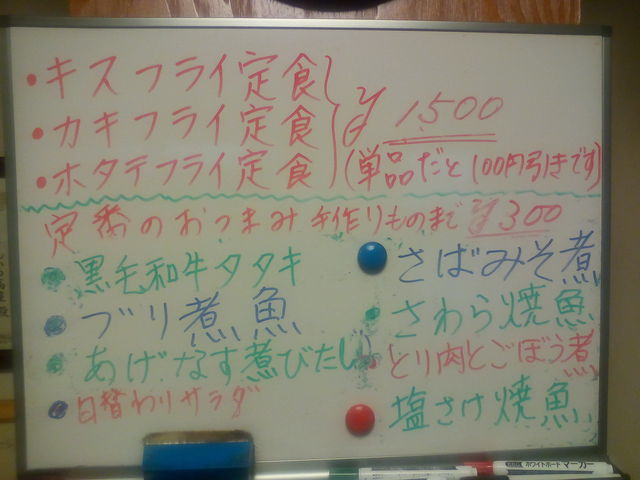 ・キスフライ定食
・カキフライ定食
・ホタテフライ定食
¥1,500
(単品だと100円引きです)
定番のおつまみ 手作りものまで ¥300
黒毛和牛タタキ
ブリ煮魚
あげなす煮びたし
日替わりサラダ
さばみそ煮
さわら焼魚
とり肉とごぼう煮
塩さけ焼魚
ホワイトボードマーカー